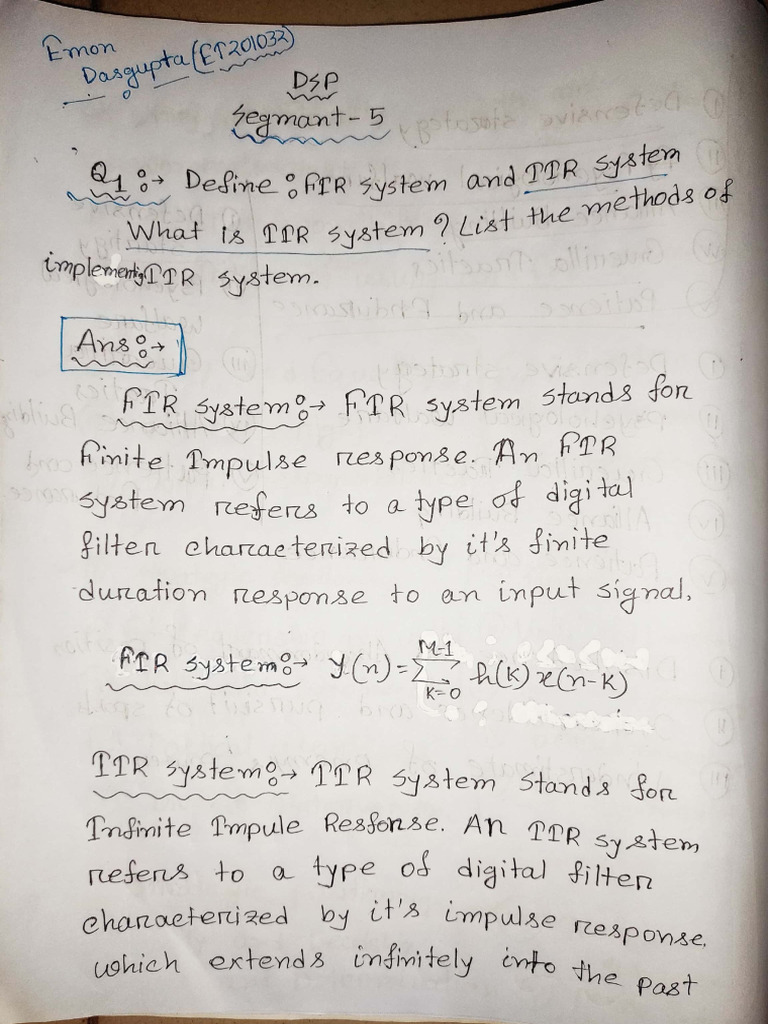 Emon
Dasgupta (ET201032)
DSP
Segmant - 5
Q1 :→ Define : FIR system and IIR system
What is IIR system? List the methods of
implementing IIR system.
Ans :→
FIR system :→ FIR system stands for
Finite Impulse response. An FIR
system refers to a type of digital
filter characterized by it's finite
duration response to an input signal,
FIR system :→ y(n) = M-1 Σ k=0 h(k) x(n-k)
IIR system :→ IIR system stands for
Infinite Impule Resfonse. An IIR system
refers to a type of digital filter
characterized by it's impulse response,
which extends infinitely into the past